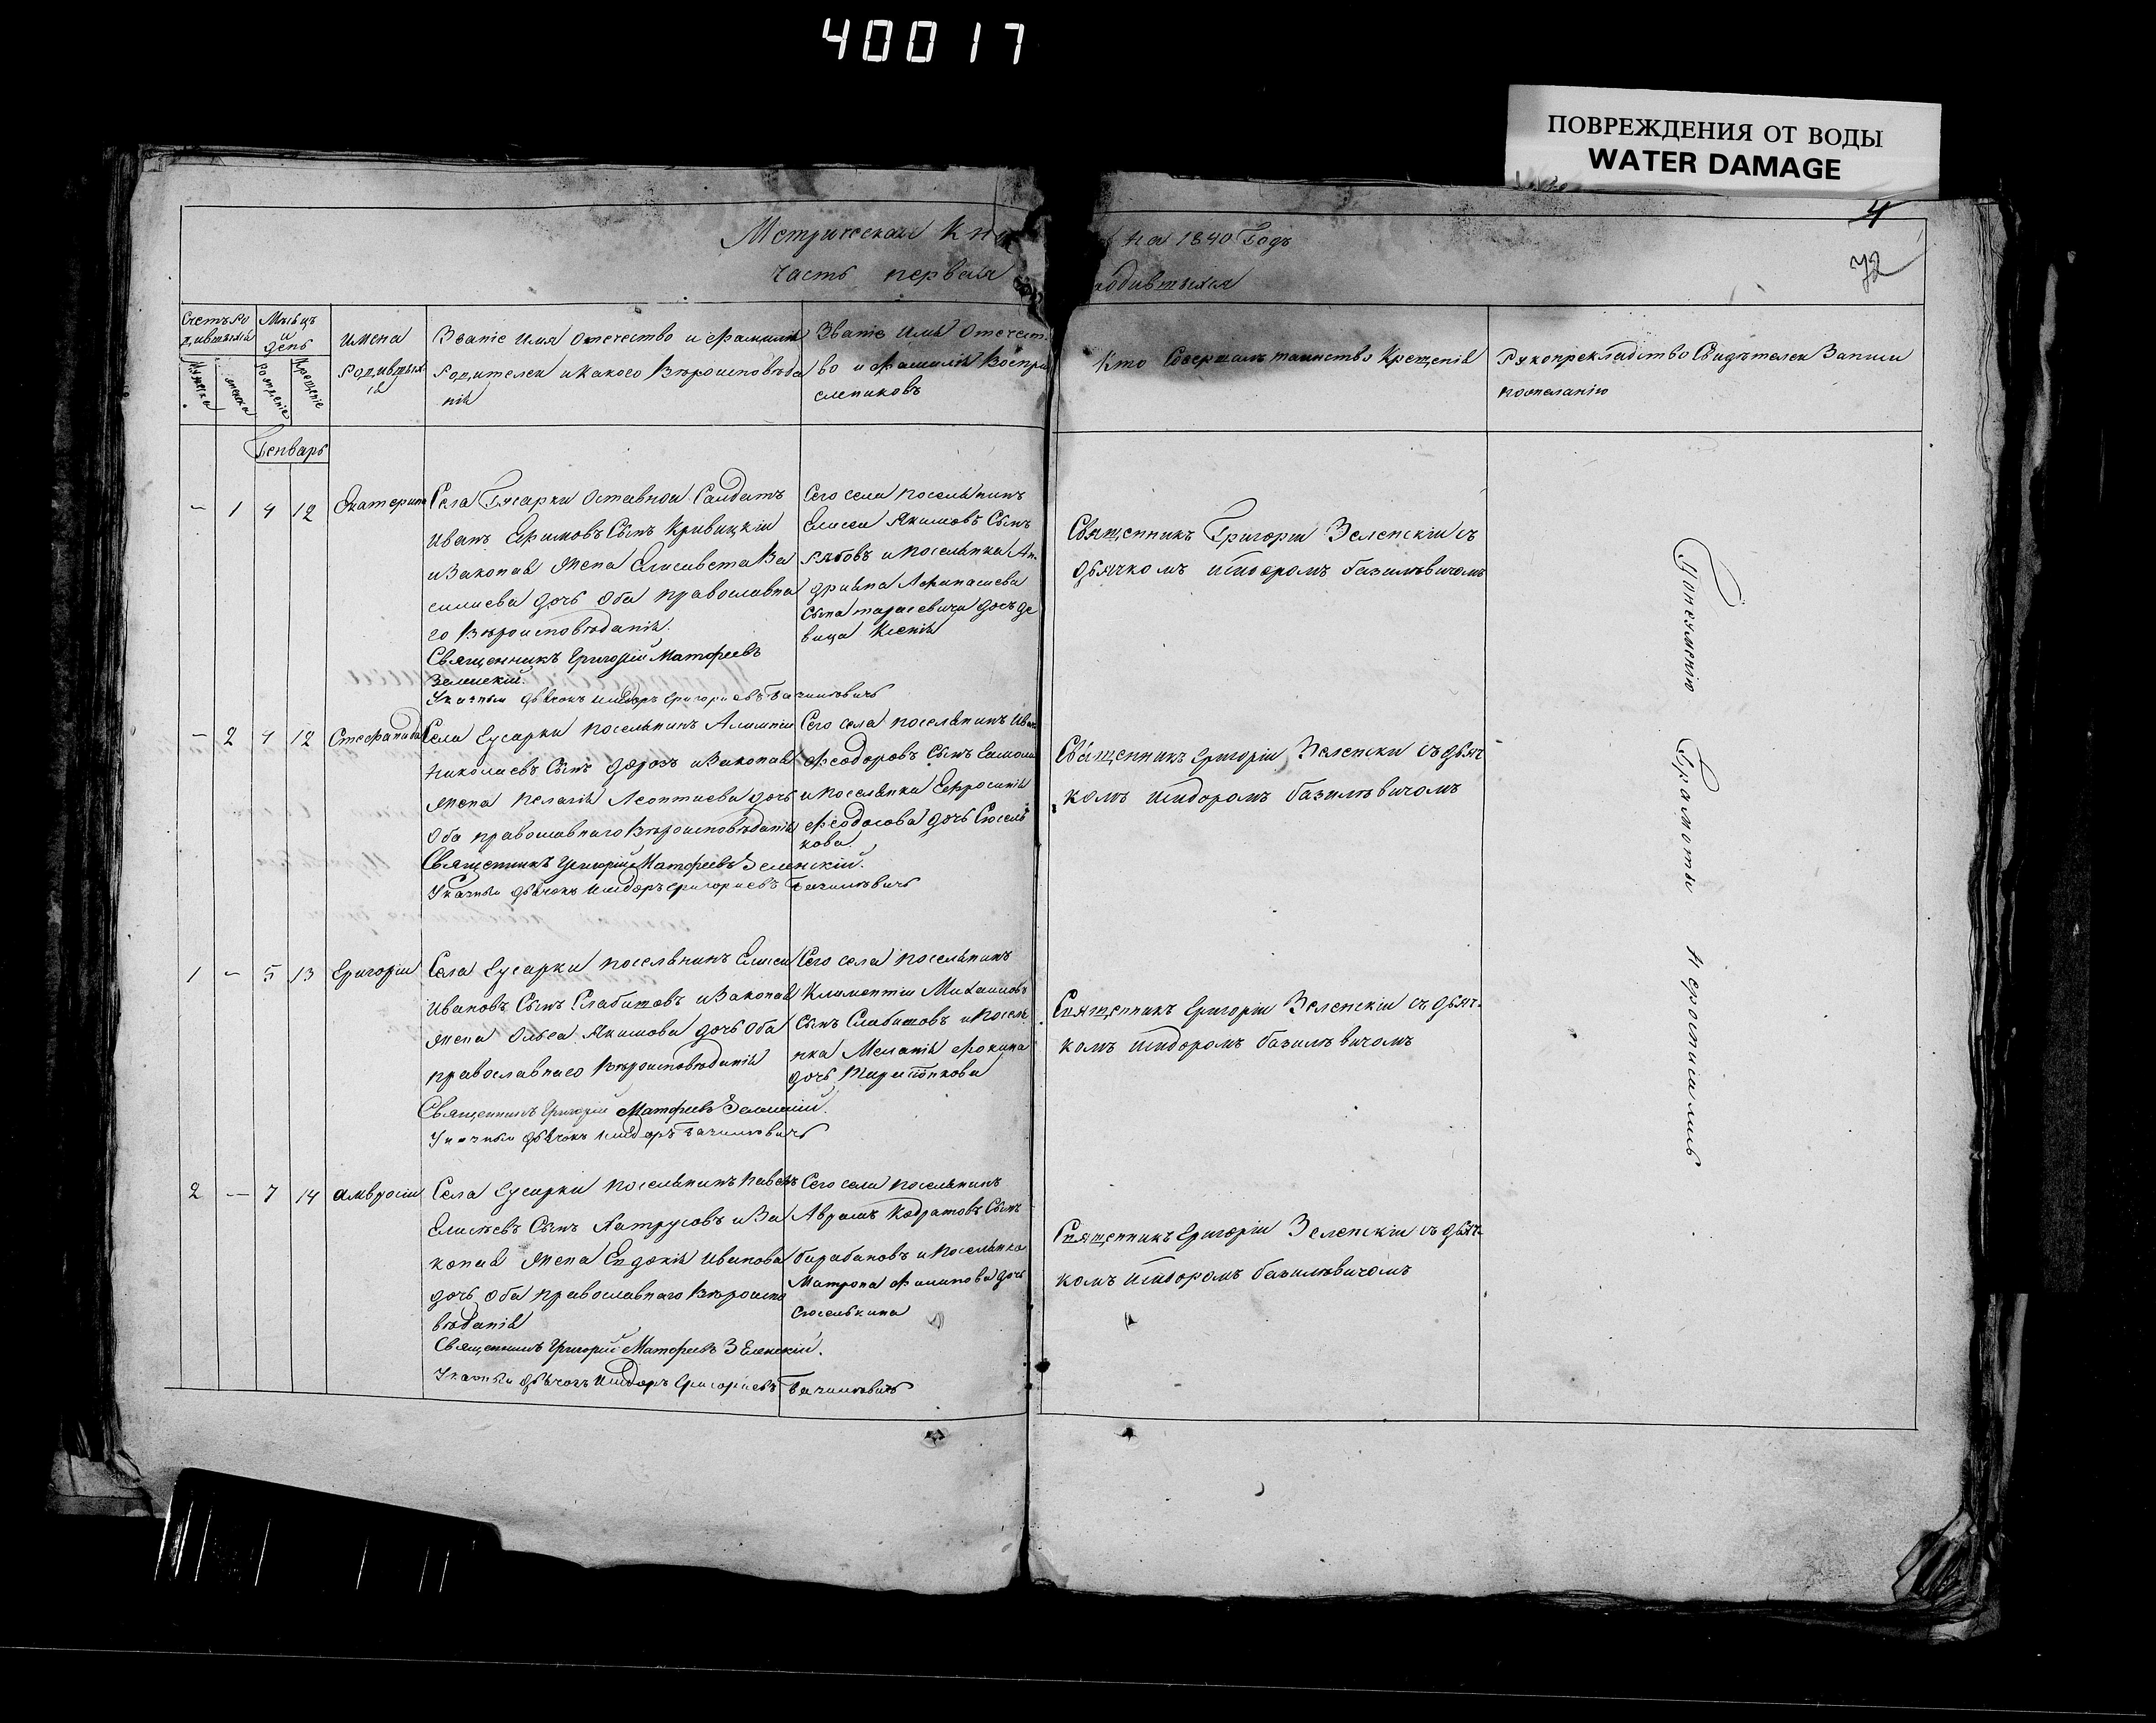 40017
ПОВРЕЖДЕНИЯ ОТ ВОДЫ
WATER DAMAGE
4
72
Метрическая Кни на 1840 Годъ
часть первая родившихся
Счетъ ро
дившихся
Мѣсяцъ
и
день
Мужска
женска
рожденіе
Крещеніе
имена
родившых
ся
Званіе имя отечество и фамилія
родителеи и какого вѣроисповѣда
нія
Званіе имя отечест
во и фамилія воспри
емниковъ
Кто совершалъ таинство Крещенія
Рукоприкладство свидѣтелеи записи
по желанію
Генварь
- 1 4 12
Екатерина
Села Гусарки отставнои Салдатъ
иванъ Ефимовъ Сынъ Кривицкіи
и Законая жена Елисивета Ва
силиева дочь оба православна
го вѣроисповѣданія.
Священникъ Григорій Матфеевъ
Зеленскій.
Указныи дьячокъ исидоръ григориевъ Базилѣвичь
Сего села поселянинъ
Елисеи Якимовъ Сынъ
рябовъ и поселянка Ан
дрияна Афанасиева
сына тарасевича дочь де
вица Ксенія
Священникъ Григорги Зеленскіи съ
дьячкомъ исидоромъ базилѣвичомъ
- 2 4 12
Стефанида
Села гусарки поселянинъ Алимпіи
николаевъ Сынъ дорозъ и Законая
жена пелагія Леонтиева дочь
оба православнаго вѣроисповѣданія
Священникъ Григорій Матфеевъ Зеленскій.
Указныи дьячокъ исидоръ григориевъ Базилѣвичь
Сего села поселянинъ Иван
феодоровъ Сынъ
и поселянка Ефросинія
феодосова дочь Сюсель
кова
Священникъ григоріи Зеленски съ дьяч
комъ исидоромъ базилѣвичомъ
1 - 5 13
григоріи
Села гусарки поселянинъ Елисеи
ивановъ Сынъ Слабишовъ и Законая
жена Ольга Якимова дочь оба
православнаго вѣроисповѣданія
Священникъ Григорій Матфеевъ Зеленскій.
Указныи дьячокъ исидоръ Базилѣвичь
Сего села поселянинъ
Климентіи Михаиловъ
Сынъ Слабишовъ и посел
нка Меланія фокина
дочь
Священникъ григоріи Зеленскіи съ дьяч
комъ исидоромъ базилѣвичомъ
2 - 7 14
амвросіи
Села гусарки поселянинъ павелъ
Елисѣевъ Сынъ Патрусовъ и За
коная жена Евдокія иванова
дочь оба православнаго вѣроиспо
вѣданія
Священникъ Григорій Матфеевъ Зеленскій.
Указныи дьячокъ исидоръ григориевъ Базилѣвичь
Сего села поселянинъ
Аврамъ Кодратовъ Сынъ
барабановъ и поселянка
Матрона филипова дочь
Сюселькина
Священникъ григоріи Зеленскіи съ дьяч
комъ исидоромъ базилѣвичомъ
По неумению Грамоты неросписались